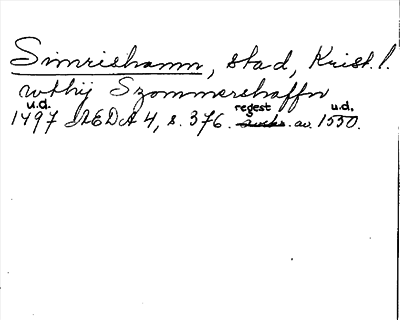 Simrishamn, stad, Krist. l.
wthij Szommershaffn
u.d. regest u.d.
1497 ÆDA 4, s. 376. avskr. av 1550.